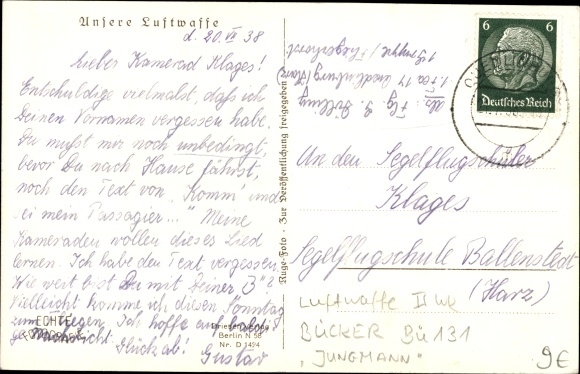 Unsere Luftwaffe
d. 20. VII 38
Lieber Kamerad Klages!
Entschuldige vielmalst, daß ich
Deinen Vornamen vergessen habe.
Du mußt mir noch unbedingt,
bevor Du nach Hause fährst,
noch den Text von „Komm' und
sei mein Passagier..." Meine
Kameraden wollen dieses Lied
lernen. Ich habe den Text vergessen.
Wie weit bist Du mit Deiner „3"?
Vielleicht komme ich diesen Sonntag
zum fliegen. Ich hoffe auf baldige
Nachricht.
Glück ab! Gustav
ECHTE
Berlin N 58
Nr. D 1494
Ruge-Foto - Zur Veröffentlichung freigegeben
Abs: Flg. G.
1. Gruppe / Fliegerhorst
6 6
Deutsches Reich
An den Segelflugschüler
Klages
Segelflugschule Ballenstedt
(Harz)
Luftwaffe II WK
BÜCKER Bü 131
„JUNGMANN"
9€